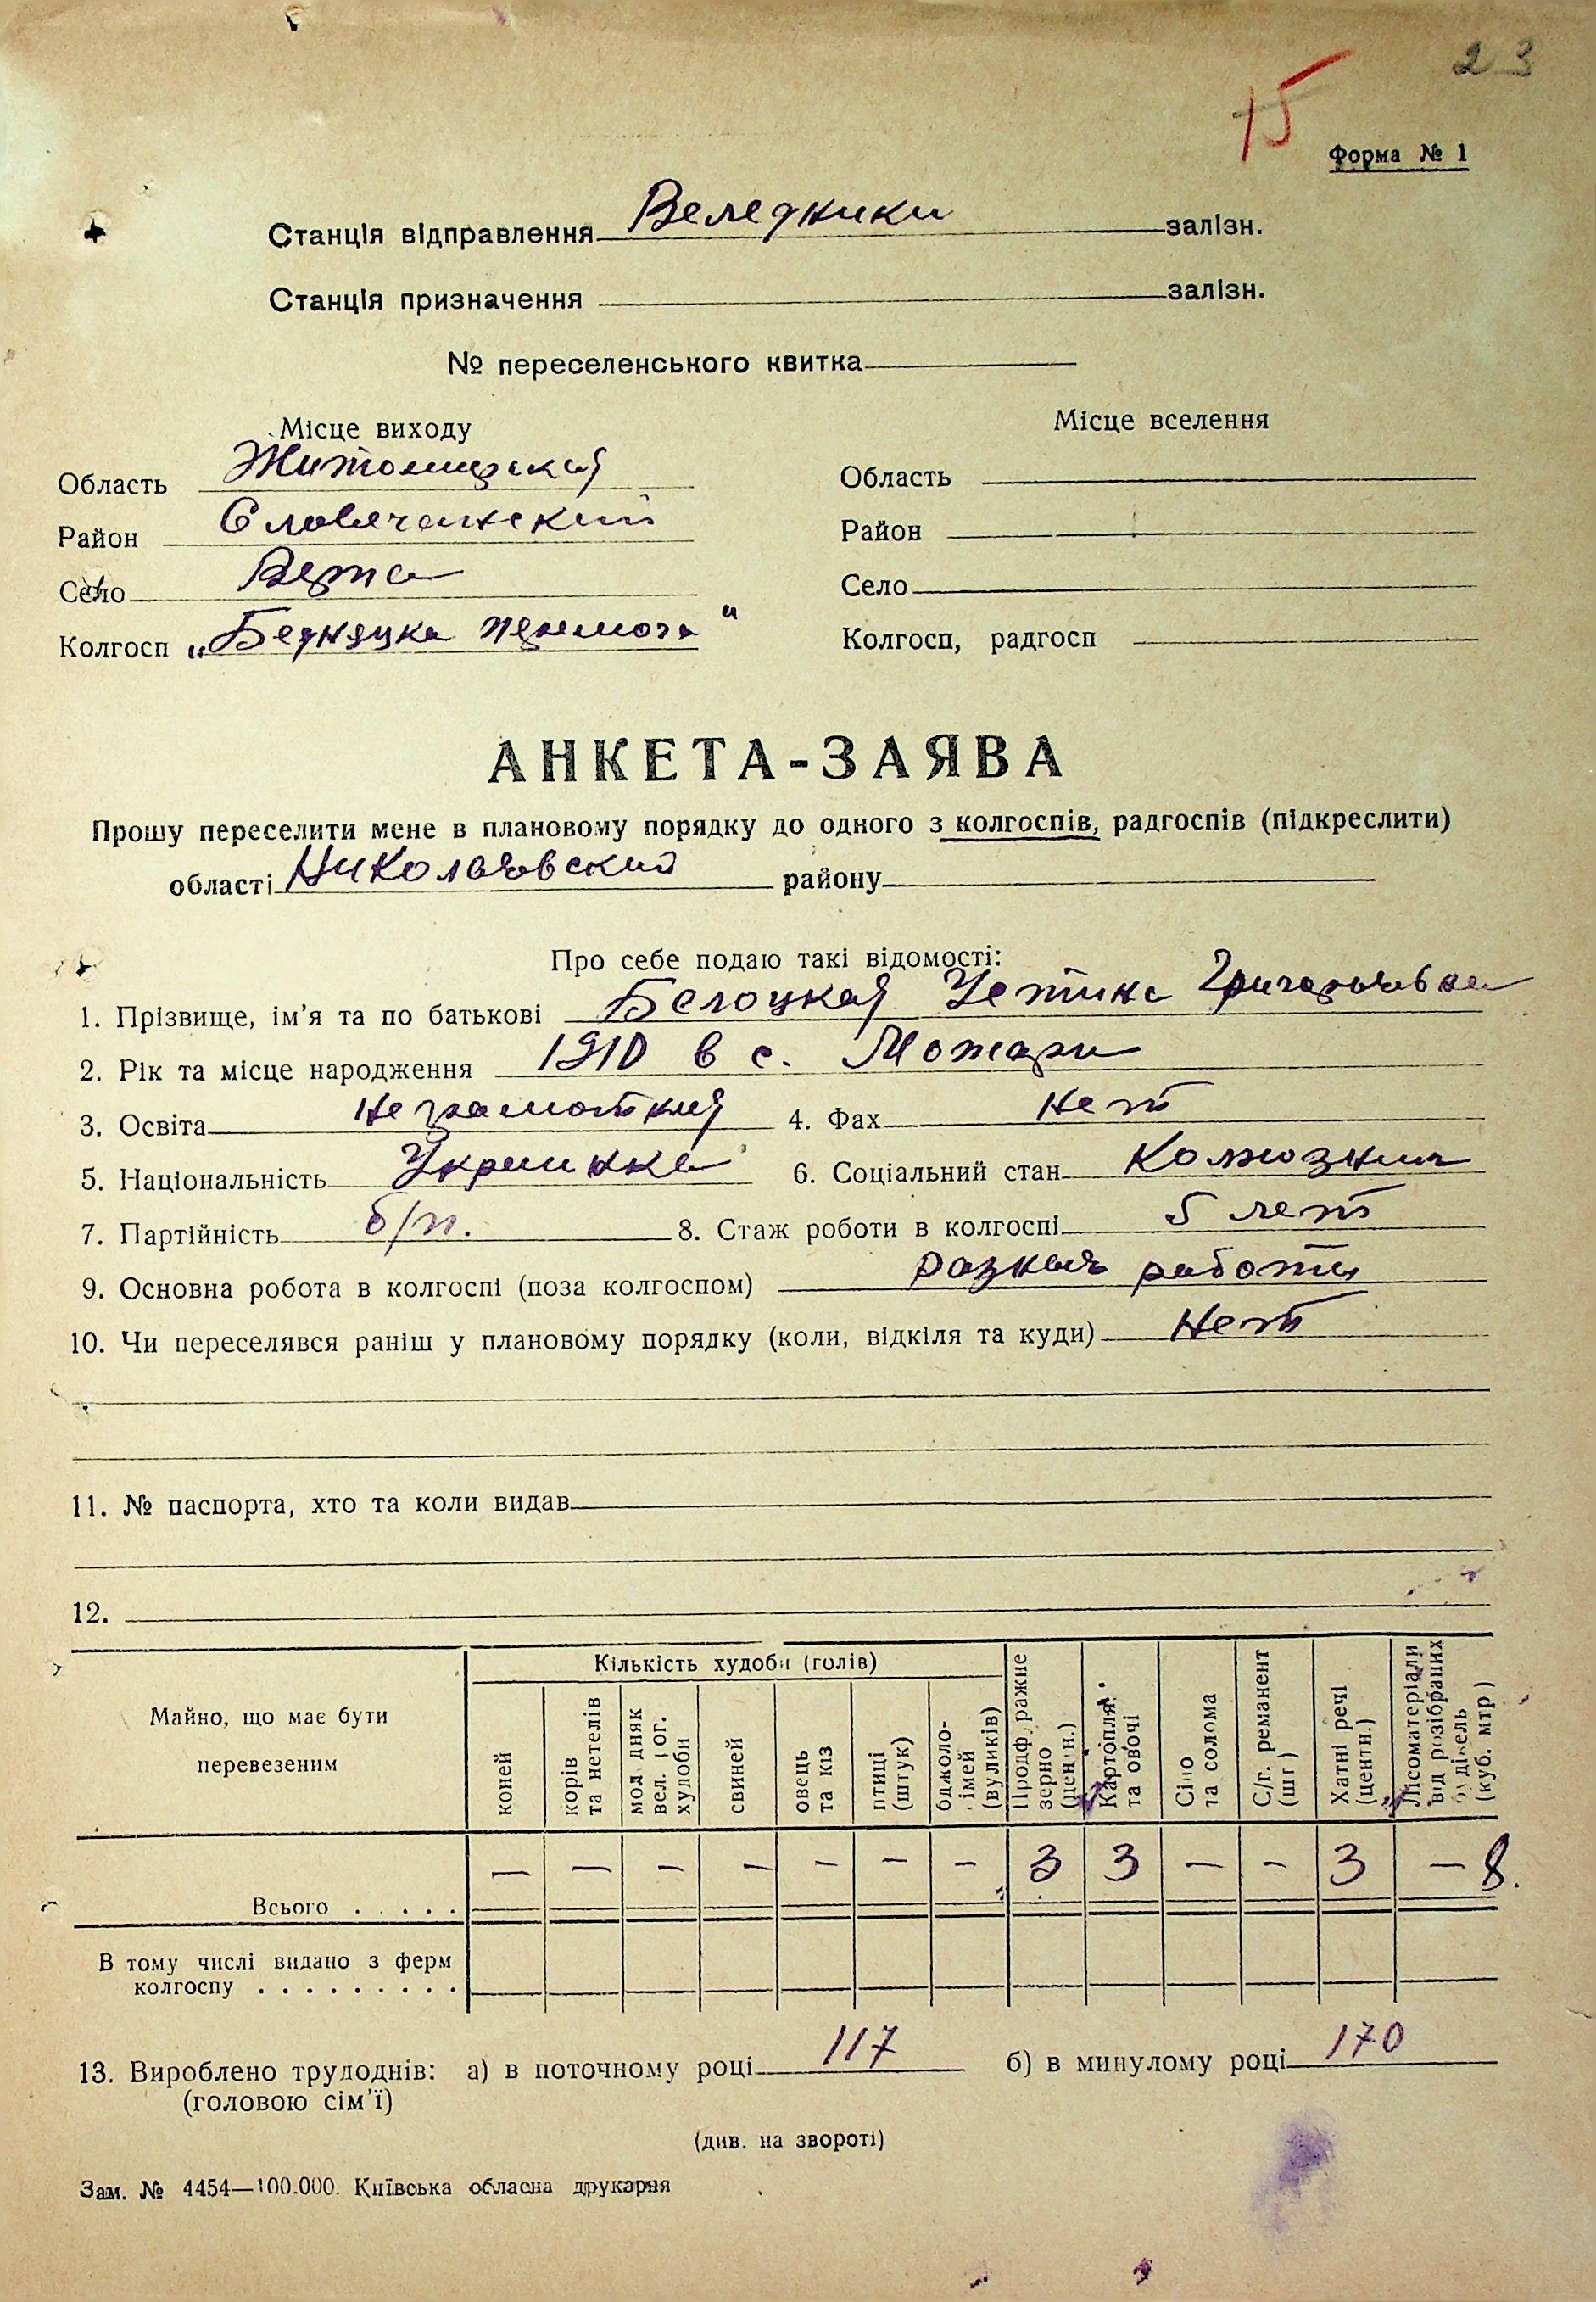 23
15
Форма № 1
Станція відправлення Веледники залізн.
Станція призначення залізн.
№ переселенського квитка
Місце виходу Місце вселення
Область Житомирская Область
Район Словечанский Район
Село Верпа Село
Колгосп „Бедняцка перемога" Колгосп, радгосп
АНКЕТА-ЗАЯВА
Прошу переселити мене в плановому порядку до одного з колгоспів, радгоспів (підкреслити)
області Николаевский району
Про себе подаю такі відомості:
1. Прізвище, ім’я та по батькові Белоцкая Устина Григорьевна
2. Рік та місце народження 1910 в с. Можари
3. Освіта неграмотная 4. Фах нет
5. Національність Украинка 6. Соціальний стан Колхозник
7. Партійність б/п. 8. Стаж роботи в колгоспі 5 лет
9. Основна робота в колгоспі (поза колгоспом) разная работа
10. Чи переселявся раніш у плановому порядку (коли, відкіля та куди) Нет
11. № паспорта, хто та коли видав
12.
Майно, що має бути перевезеним
Кількість худоби (голів)
коней
корів та нетелів
молодняк вел. рог. худоби
свиней
овець та кіз
птиці (штук)
бджоло-сімей (вуликів)
Продфуражне зерно (центн.)
Картопля та овочі
Сіно та солома
С/г. реманент (шт)
Хатні речі (центн.)
Лісоматеріали від розібраних будівель (куб. мтр)
Всього . . . . . — — — — — — — 3 3 — — 3 — 8.
В тому числі видано з ферм
колгоспу . . . . . . . . .
13. Вироблено трудоднів: а) в поточному році 117 б) в минулому році 170
(головою сім’ї)
(див. на звороті)
Зам. № 4454—100.000. Київська обласна друкарня